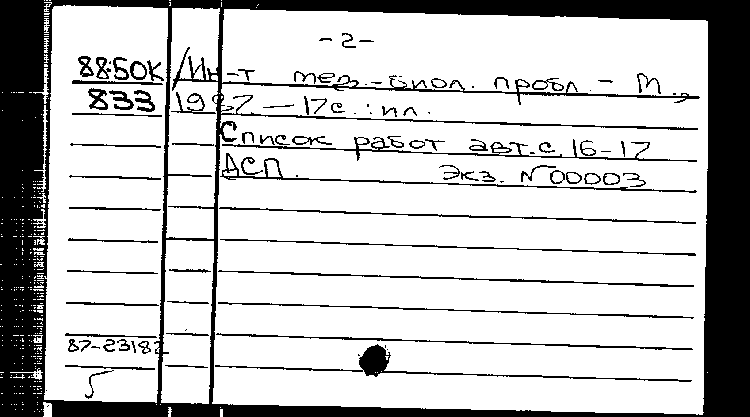 -2-
88-50К /Ин-т мед.-биол. пробл. - М.,
833 1987. - 17с. : ил.
Список работ авт. с. 16-17
ДСП. Экз. №00003
87-23182
5